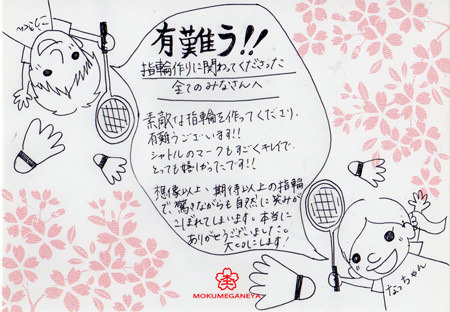 有難う!!
指輪作りに関わってくださった
全てのみなさんへ
素敵な指輪を作ってくださり、
有難うございます!!
シャトルのマークもすごくキレイで、
とっても嬉しかったです!!
想像以上、期待以上の指輪
で、驚きながらも自然に笑みが
こぼれてしまいます。本当に
ありがとうございました。
大切にします!
なっちゃん
MOKUMEGANEYA